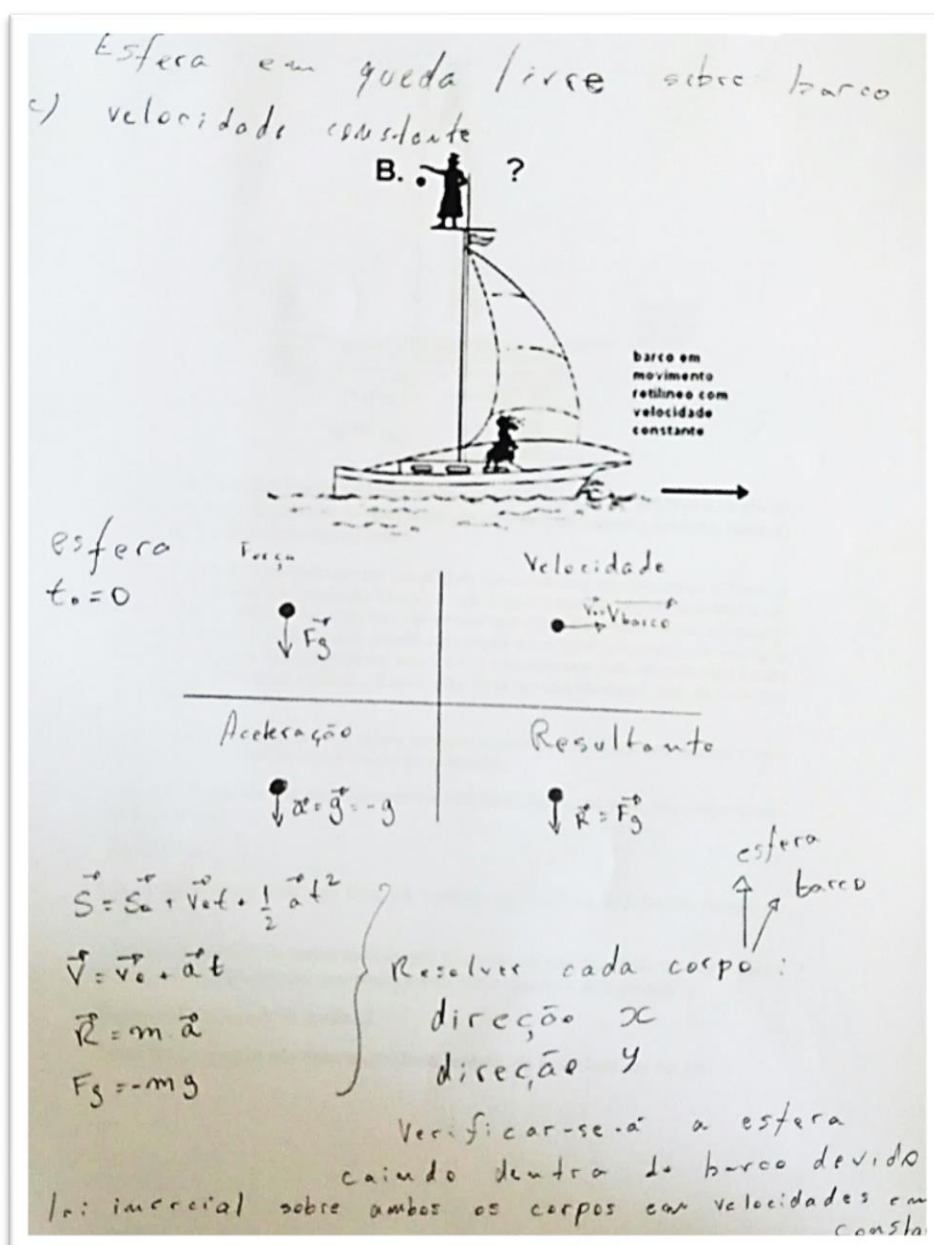 Esfera em queda livre sobre barco
c) velocidade constante
B. ?
barco em
movimento
retilíneo com
velocidade
constante
esfera
t₀=0
Força
F⃗g
Velocidade
V⃗₀=V⃗barco
Aceleração
a⃗=g⃗=-g
Resultante
R⃗=F⃗g
esfera
barco
S⃗=S⃗₀+V⃗₀t+1/2 a⃗t²
V⃗=V⃗₀+a⃗t
R⃗=m.a⃗
Fg=-mg
Resolver cada corpo:
direção x
direção y
Verificar-se-á a esfera
caindo dentro do barco devido
lei inercial sobre ambos os corpos em velocidades em
consta